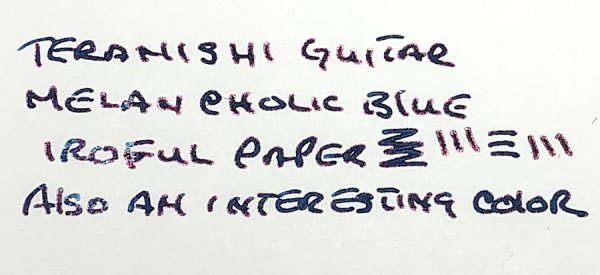 TERANISHI GUITAR
MELANCHOLIC BLUE
IROFUL PAPER
ALSO AN INTERESTING COLOR